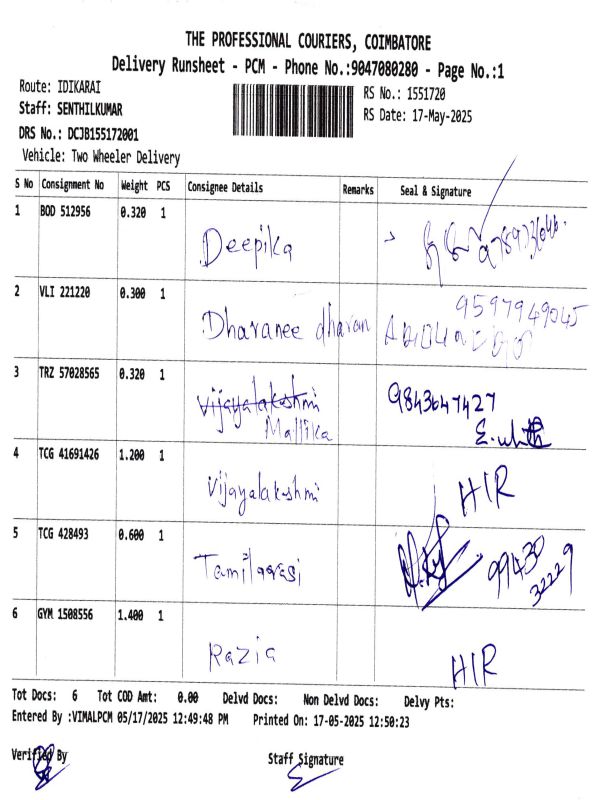 THE PROFESSIONAL COURIERS, COIMBATORE
Delivery Runsheet - PCM - Phone No.:9047080280 - Page No.:1
Route: IDIKARAI
RS No.: 1551720
Staff: SENTHILKUMAR
RS Date: 17-May-2025
DRS No.: DCJB155172001
Vehicle: Two Wheeler Delivery
S No Consignment No Weight PCS Consignee Details Remarks Seal & Signature
1 BOD 512956 0.320 1 Deepika
2 VLI 221220 0.300 1 Dharanee dharan 9597949045
3 TRZ 57028565 0.320 1 Vijayalakshmi 9843647427
Mallika
4 TCG 41691426 1.200 1 Vijayalakshmi HIR
5 TCG 428493 0.600 1 Tamilarasi 99430
32229
6 GYM 1508556 1.400 1 Razia HIR
Tot Docs: 6 Tot COD Amt: 0.00 Delvd Docs: Non Delvd Docs: Delvy Pts:
Entered By :VIMALPCM 05/17/2025 12:49:48 PM Printed On: 17-05-2025 12:50:23
Verified By Staff Signature